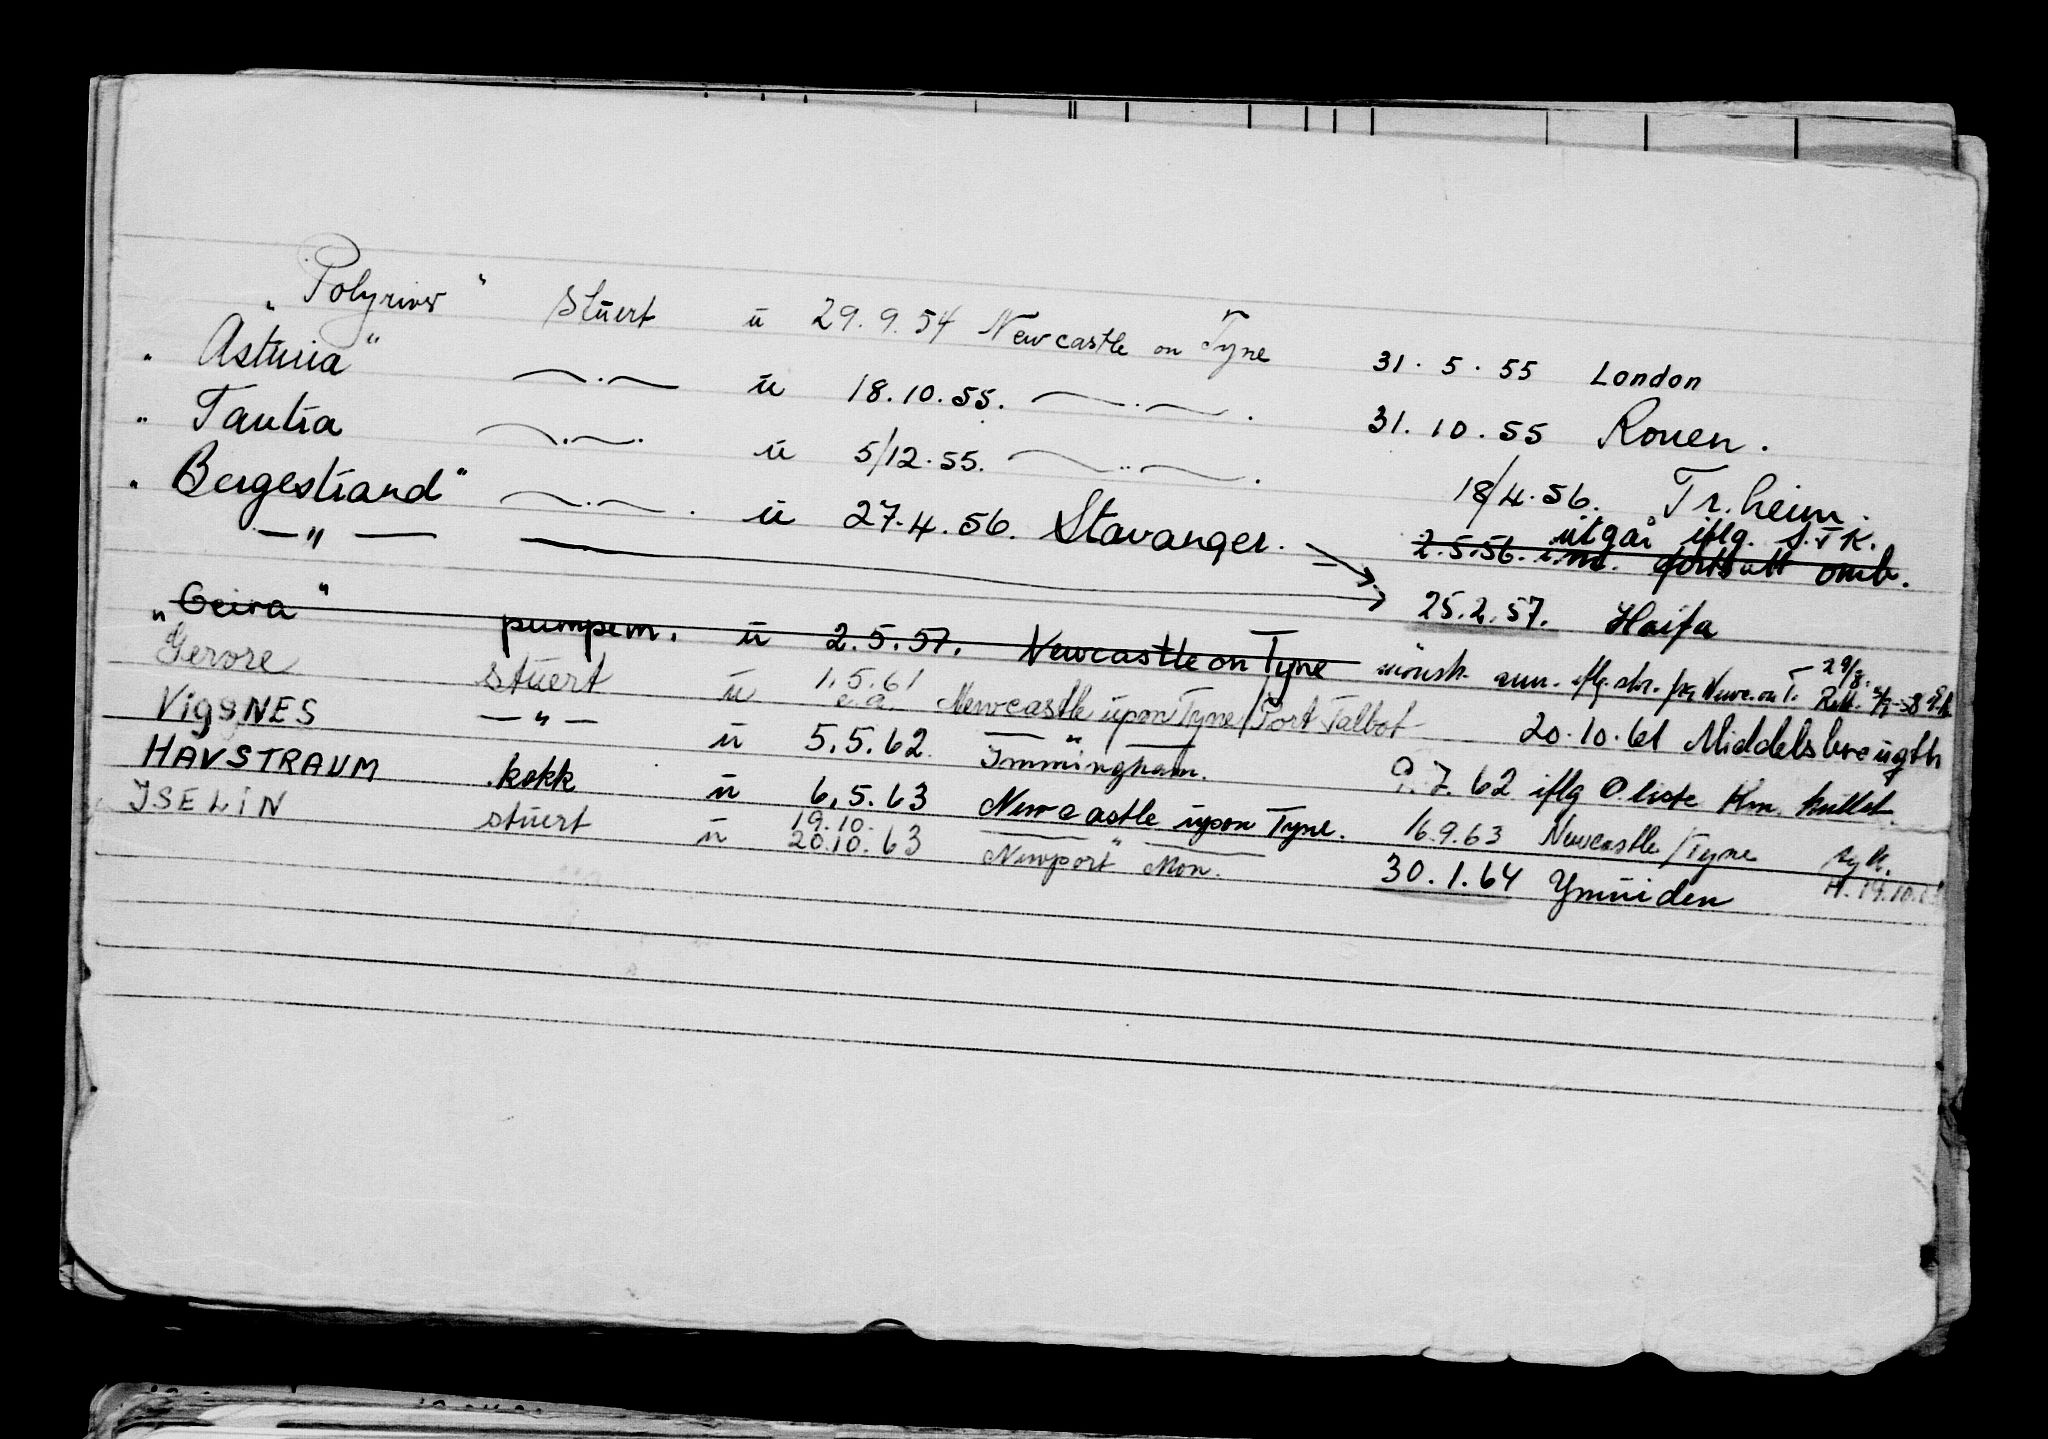 „ Polyriver " Stuert u 29.9.54 Newcastle on Tyne 31.5.55 London
" Asturia " —.— u 18.10.55. —.—. 31.10.55 Rouen.
" Tautra —.—. u 5/12.55. —..—. 18/4.56. Tr.heim.
" Bergestrand " —.—. u 27.4.56. Stavanger. utgår iflg. S.T.K.
2.5.56. fortsatt omb.
— " — 25.2.57. Haifa
„ Geira " pumpem. u 2.5.57. Newcastle on Tyne mönstr. ann. iflg.
Gerore stuert u 1.5.61 e.a. Newcastle upon Tyne/Port Talbot 20.10.61 Middelsbrougth
ViggNES — " — u 5.5.62 — " — Immingham. 9.7.62 iflg
HAVSTRAUM kokk u 6.5.63 Newcastle upon Tyne. 16.9.63 Newcastle/Tyne syk.
ISELIN stuert u 19.10. 20.10.63 — " — Newport Mon. 30.1.64 Ymuiden